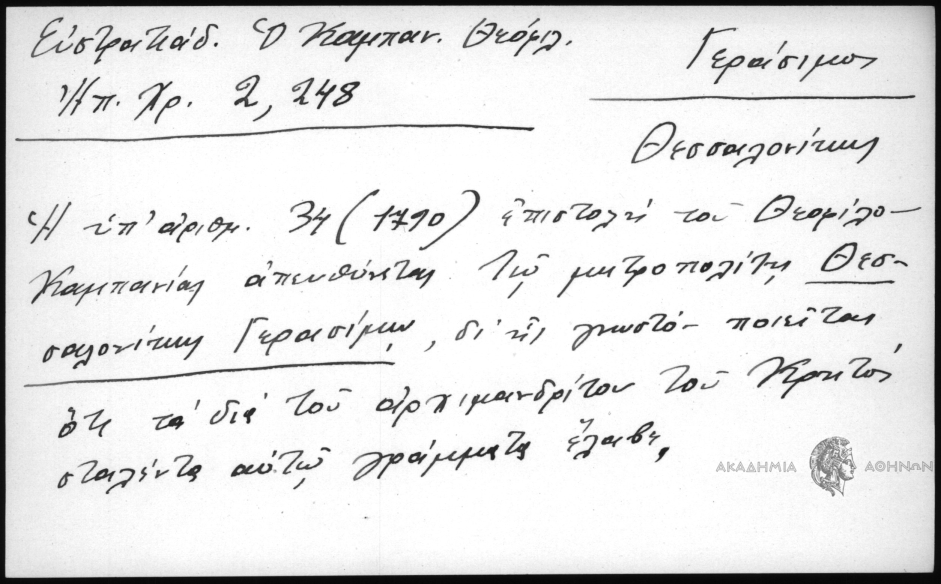 Εὐστρατιάδ. Ὁ Καμπαν. Θεόφιλ.
Ἠπ. Χρ. 2, 248
Γεράσιμος
Θεσσαλονίκης
Ἡ ὑπ' ἀριθμ. 34 (1790) ἐπιστολὴ τοῦ Θεοφίλο-
Καμπανίας ἀπευθύνεται τῷ μητροπολίτῃ Θεσ-
σαλονίκης Γερασίμῳ, δι' ἧς γνωστὸ- ποιεῖται
ὅτι τὰ διὰ τοῦ ἀρχιμανδρίτου τοῦ Κρητὸς
σταλέντα αὐτῷ γράμματα ἔλαβε,
ΑΚΑΔΗΜΙΑ ΑΘΗΝΩΝ